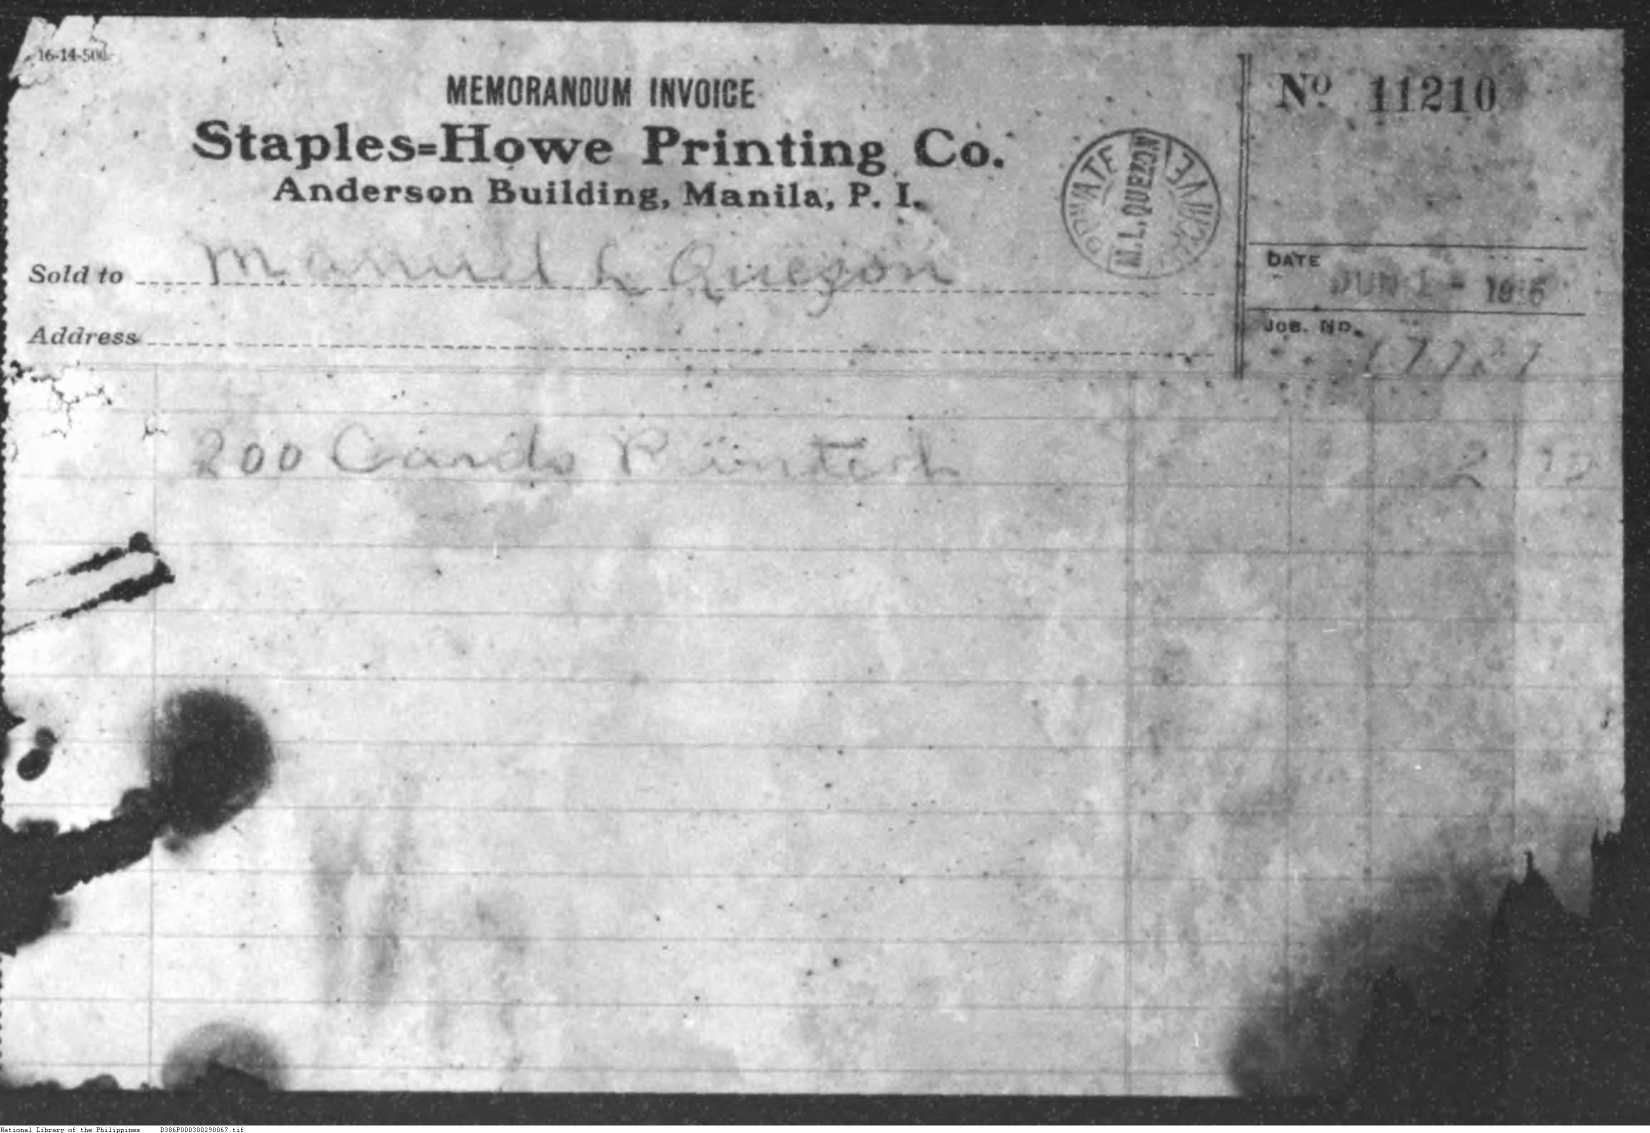 16-14-500
MEMORANDUM INVOICE
Nº 11210
Staples-Howe Printing Co.
Anderson Building, Manila, P. I.
PRIVATE ARCHIVE
M. L. QUEZON
Sold to Manuel L Quezon
DATE JUN 1 - 1916
Address
JOB. NO. 17727
200 Cards Printed 2
National Library of the Philippines D386P000300290067.tif